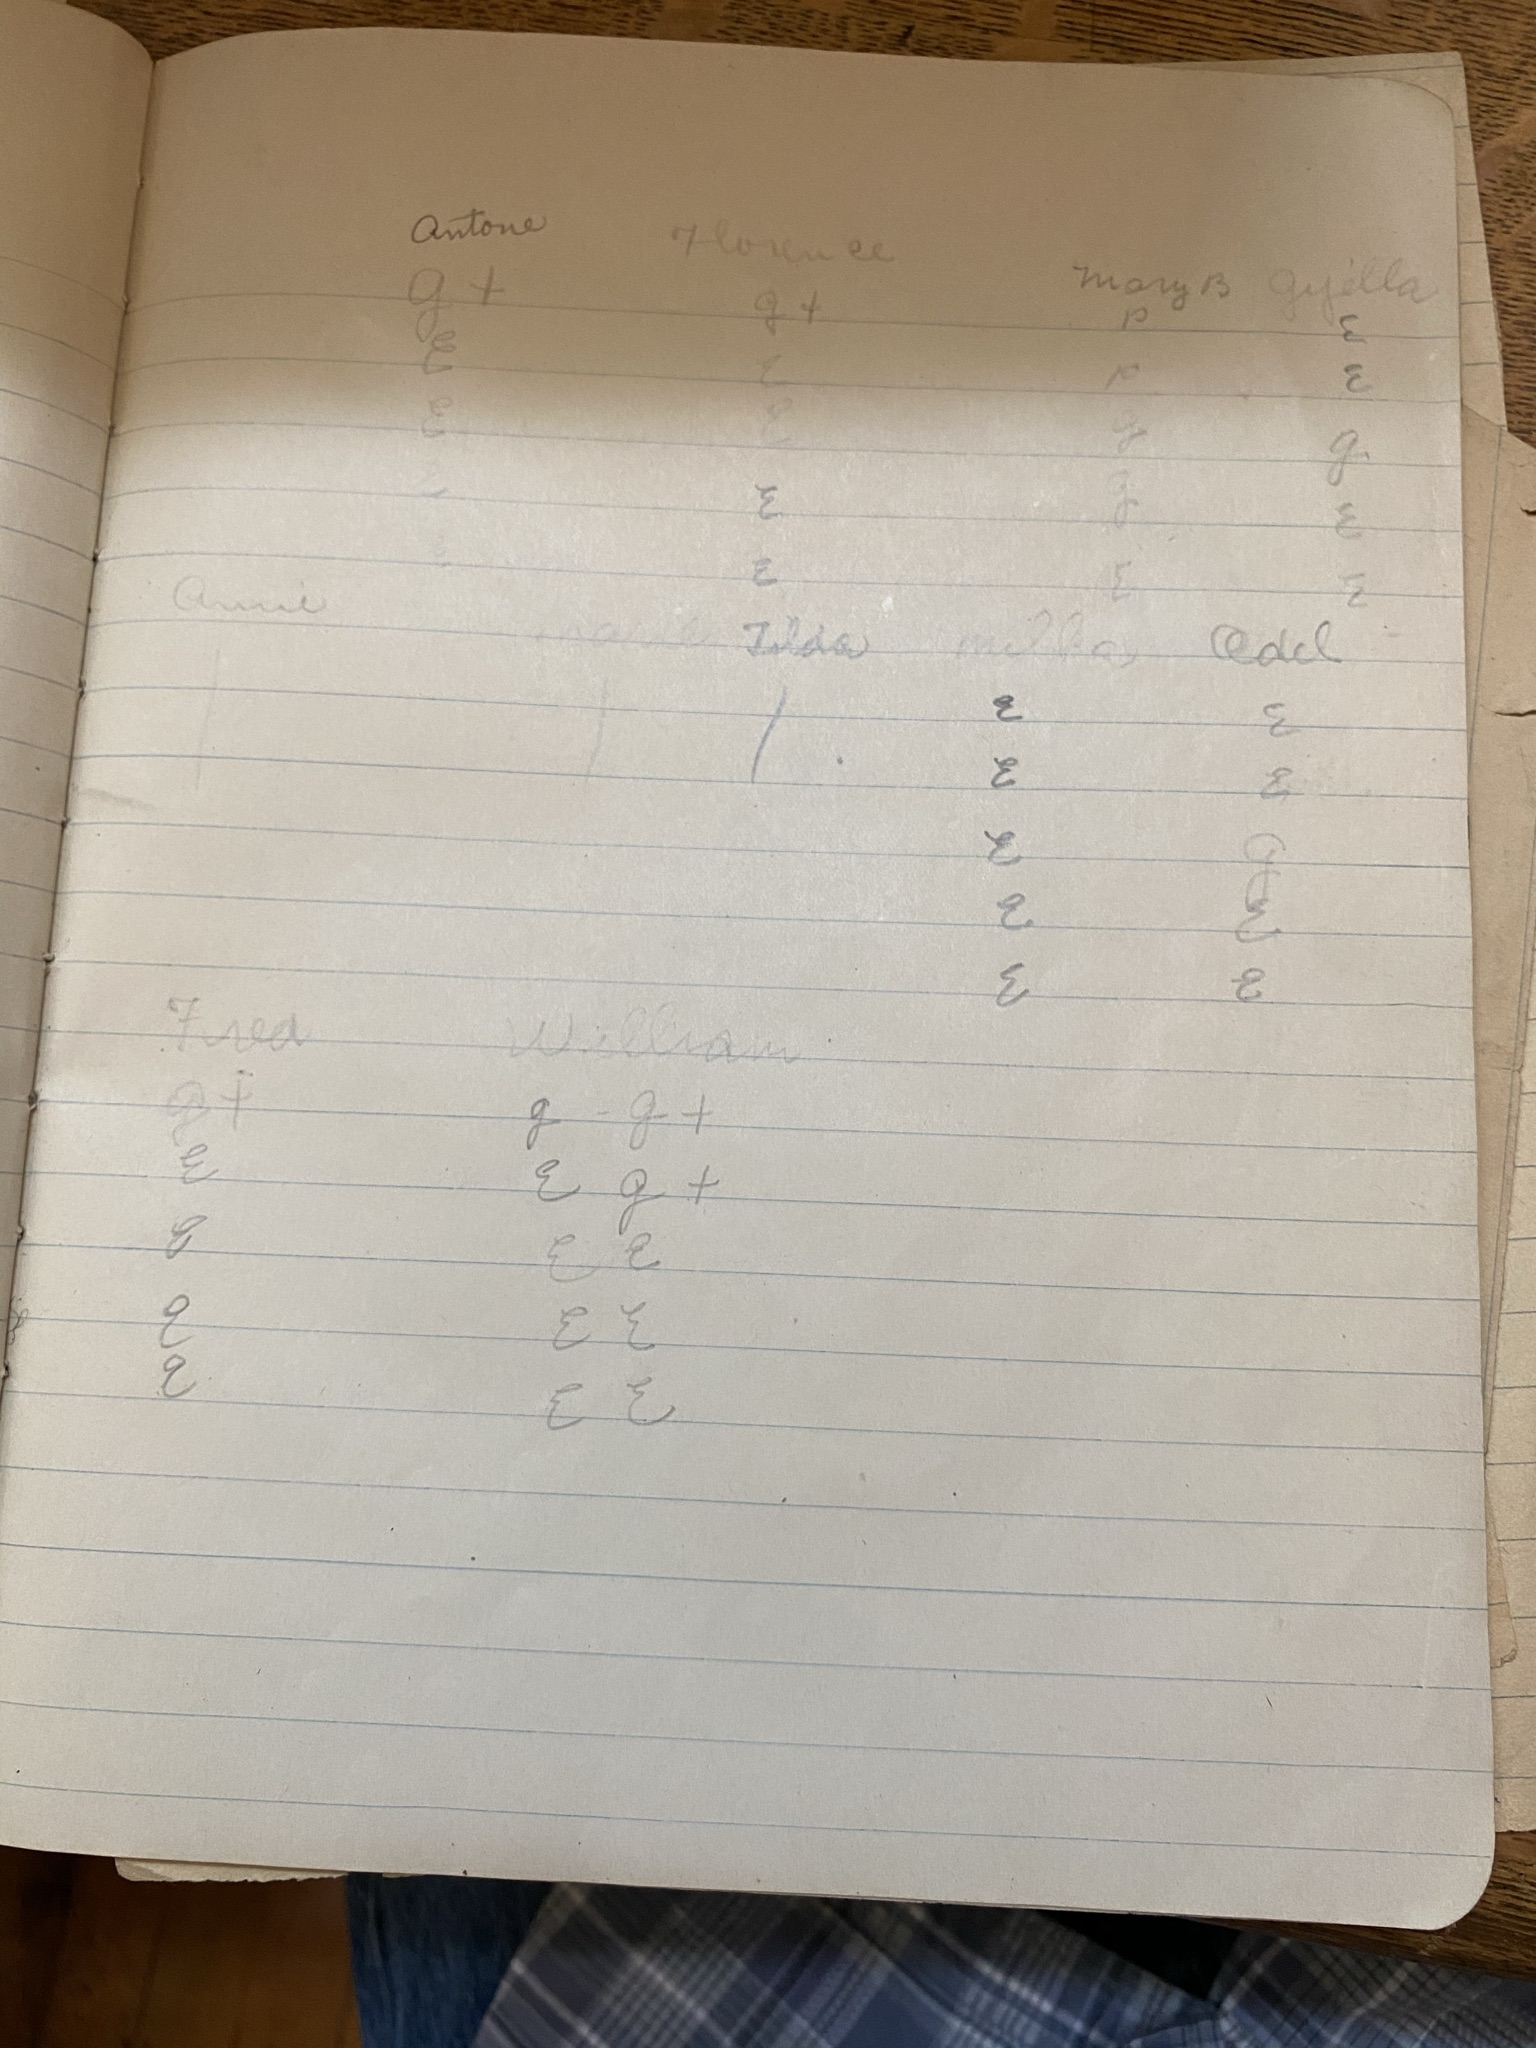 Antone Florence
Mary B Gyella
g+ g+ P E
E E P E
E E g g
E E g E
E E E E
Annie Marie Tilda Milla Odel
/ / / E E
E E
E g
E E
E E
Fred William
g+ g - g+
E E g+
E E E
E E E
E E E